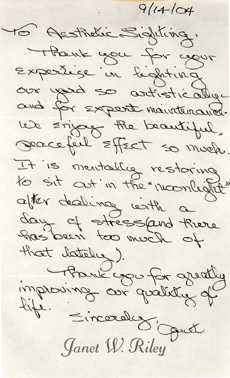 9/14/04
To Aesthetic Lighting,
Thank you for your
expertise in lighting
our yard so artistically
and for expert maintenance.
We enjoy the beautiful,
peaceful effect so much.
It is mentally restoring
to sit out in the "moonlight"
after dealing with a
day of stress (and there
has been too much of
that lately).
Thank you for greatly
improving our quality of
life.
Sincerely,
Janet
Janet W. Riley